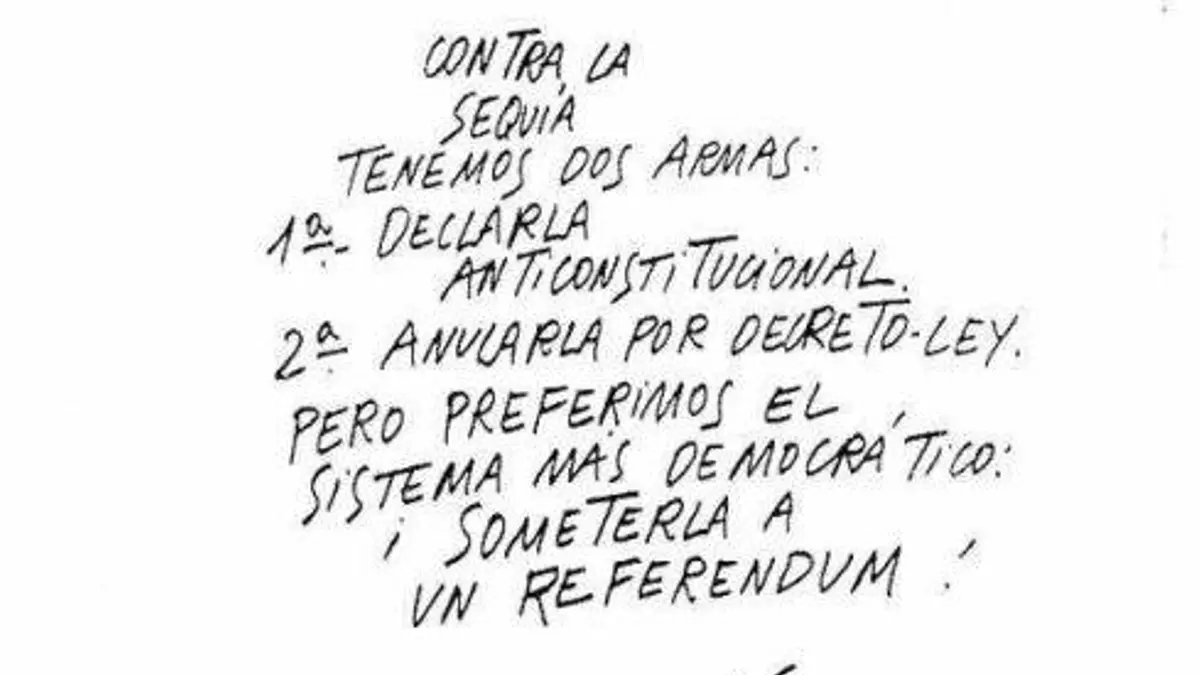 CONTRA LA
SEQUÍA
TENEMOS DOS ARMAS:
1ª- DECLARLA
ANTICONSTITUCIONAL.
2ª ANULARLA POR DECRETO-LEY.
PERO PREFERIMOS EL
SISTEMA MÁS DEMOCRÁTICO:
¡ SOMETERLA A
UN REFERENDUM !